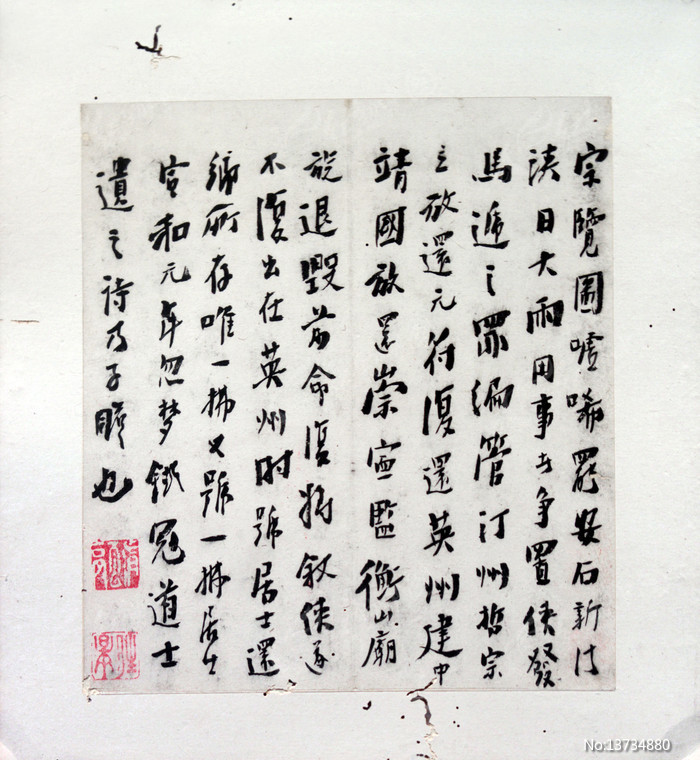 宗覽圖噓唏罷安石新法
浹日大雨用事者争置侠發
馬遞之罪編管汀州哲宗
立放還元符復還英州建中
靖國放還崇寧監衡山廟
旋退毀前命復將叙侠遂
不復出在英州時號居士還
鄉所存唯一拂又號一拂居士
宣和元年忽梦鐵冠道士
遺之诗乃子瞻也
No:13734880